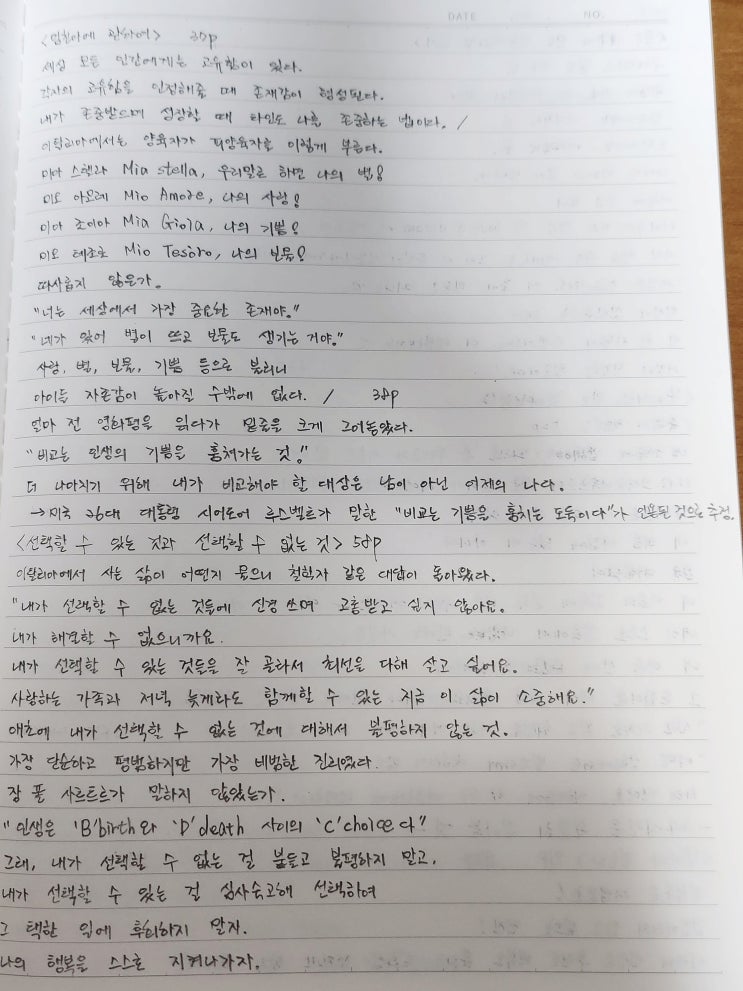 DATE NO.
<밈미아에 관하여> 35p
세상 모든 인간에게는 고유함이 있다.
각자의 고유함을 인정해줄 때 존재감이 형성된다.
내가 존중받으며 성장할 때 타인도 나를 존중하는 법이다. /
이탈리아에서는 양육자가 피양육자를 이렇게 부른다.
미아 스텔라 Mia stella, 우리말로 하면 나의 별!
미오 아모레 Mio Amore, 나의 사랑!
미아 조이아 Mia Gioia, 나의 기쁨!
미오 테조로 Mio Tesoro, 나의 보물!
따사롭지 않은가.
"너는 세상에서 가장 중요한 존재야."
"네가 있어 별이 뜨고 보물도 생기는 거야."
사랑, 별, 보물, 기쁨 등으로 불리니
아이들 자존감이 높아질 수밖에 없다. / 38p
얼마 전 영화평을 읽다가 밑줄을 크게 그어놓았다.
"비교는 인생의 기쁨을 훔쳐가는 것!"
더 나아지기 위해 내가 비교해야 할 대상은 남이 아닌 어제의 나다.
→미국 26대 대통령 시어도어 루스벨트가 말한 "비교는 기쁨을 훔치는 도둑이다"가 인용된 것으로 추정.
<선택할 수 있는 것과 선택할 수 없는 것> 58p
이탈리아에서 사는 삶이 어떤지 물으니 철학자 같은 대답이 돌아왔다.
"내가 선택할 수 없는 것들에 신경 쓰며 고통받고 싶지 않아요.
내가 해결할 수 없으니까요.
내가 선택할 수 있는 것들을 잘 골라서 최선을 다해 살고 싶어요.
사랑하는 가족과 저녁 늦게라도 함께할 수 있는 지금 이 삶이 소중해요."
애초에 내가 선택할 수 없는 것에 대해서 불평하지 않는 것.
가장 단순하고 평범하지만 가장 비범한 진리였다.
장 폴 사르트르가 말하지 않았는가.
"인생은 'B'birth와 'D'death 사이의 'C'choice다"
그래, 내가 선택할 수 없는 걸 붙들고 불평하지 말고,
내가 선택할 수 있는 걸 심사숙고해 선택하여
그 택한 일에 후회하지 말자.
나의 행복을 스스로 지켜나가자.